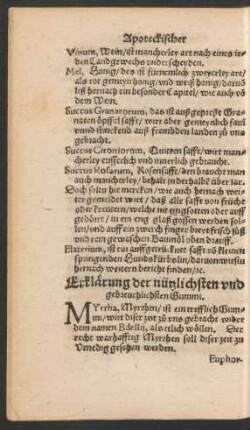 Apoteckischer
Vinum, Wein/ ist mancherley art nach eines ie-
den Landgewechs vnderscheyden.
Mel, Honig/ des ist fürnemlich zweyerley art/
als rot gemeyn honig/ vnd weiß honig/ daruō
liß hernach ein besonder Capitel/ wie auch vō
dem Wein.
Succus Granatorum, das ist außgepreßt Gra-
naten öpffel safft/ wirt aber gemeynlich faul
vnd stinckend auß frembden landen zů vns
gebracht.
Succus Citoniorum, Quitten safft/ wirt man-
cherley eusserlich vnd innerlich gebraucht.
Succus Rosarum, Rosensafft/ den braucht man
auch mancherley/ behalt in derhalb über jar.
Doch soltu hie mercken/ wie auch hernach wei-
ter gemeldet wirt/ daß alle säfft von frücht
oder kreütern/ welche nit eingsotten oder auff
gedörrt/ in eng glaß gossen werden sol-
len/ vnd auff ein zwerch finger breyt frisch süß
vnd rein gewaschen Baumöl oben drauff.
Elaterium, ist ein auffgetrücknet safft vō kleinen
springenden Hundskürbslin/ daruon wirstu
hernach weitern bericht finden/ ꝛc.
Erklärung der nützlichsten vnd
gebreuchlichsten Gummi.
MYrrha, Myrrhen/ ist ein trefflich Gum-
mi/ wirt diser zeit zů vns gebracht vnder
dem namen Bdelij, als etlich wöllen. Der
recht warhafftig Myrrhen soll diser zeit zů
Venedig gesehen werden.
Euphor-